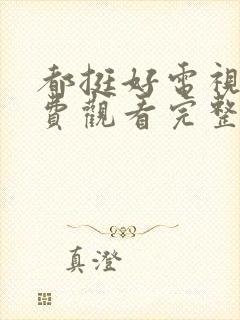 都挺好電視
費觀看完整
真澄